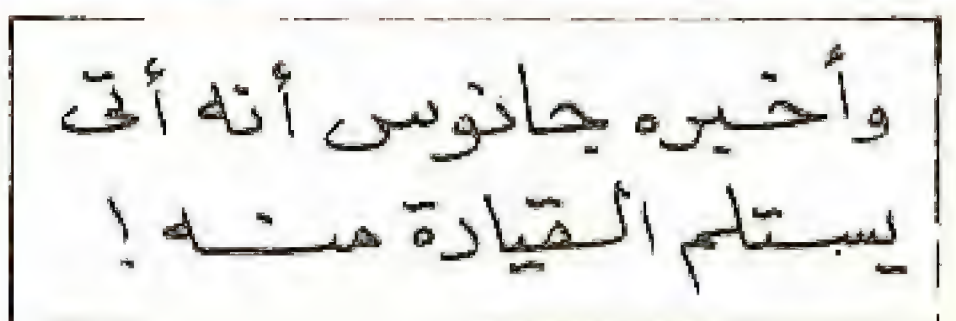 وأخبره جانوس أنه أتى
ليستلم القيادة منه !